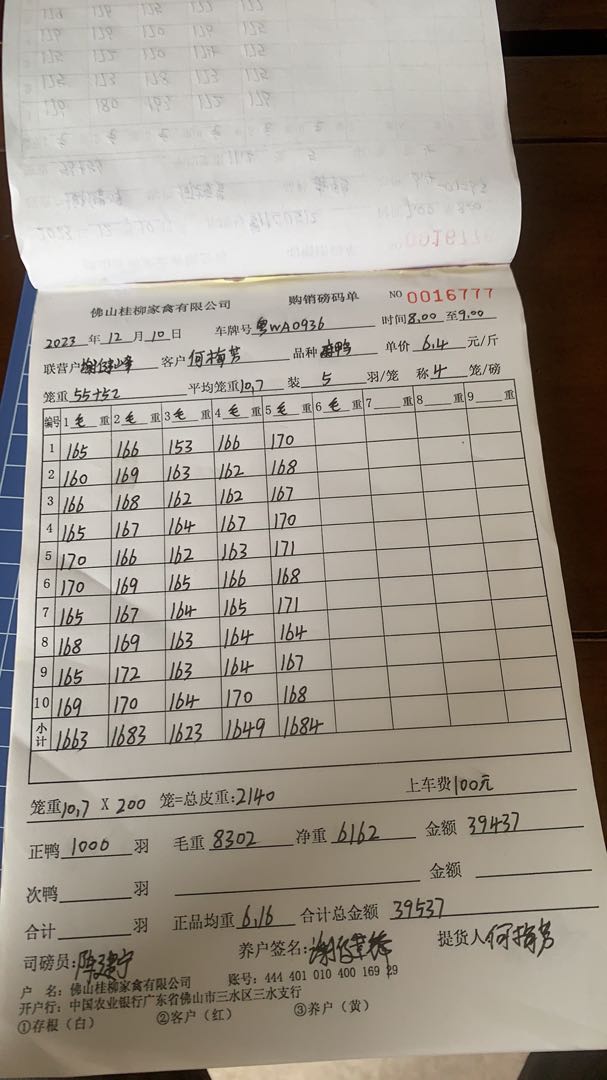 佛山桂柳家禽有限公司 购销磅码单 NO 0016777
2023 年 12 月 10 日 车牌号 粤WA0936 时间 8.00 至 9.00
联营户 谢健峰 客户 何梅芳 品种 麻鸭 单价 6.4 元/斤
笼重 55+52 平均笼重 10.7 装 5 羽/笼 称 4 笼/磅
编号 1 毛 重 2 毛 重 3 毛 重 4 毛 重 5 毛 重 6 毛 重 7 重 8 重 9 重
1 165 166 153 166 170
2 160 169 163 162 168
3 166 168 162 162 167
4 165 167 164 167 170
5 170 166 162 163 171
6 170 169 165 166 168
7 165 167 164 165 171
8 168 169 163 164 164
9 165 172 163 164 167
10 169 170 164 170 168
小计 1663 1683 1623 1649 1684
笼重 10.7 X 200 笼=总皮重: 2140 上车费 100元
正鸭 1000 羽 毛重 8302 净重 6162 金额 39437
次鸭 羽 金额
合计 羽 正品均重 6.16 合计总金额 39537
司磅员: 陈建宁 养户签名: 谢健峰 提货人 何梅芳
户 名: 佛山桂柳家禽有限公司 账号: 444 401 010 400 169 29
开户行: 中国农业银行广东省佛山市三水区三水支行
①存根（白） ②客户（红） ③养户（黄）